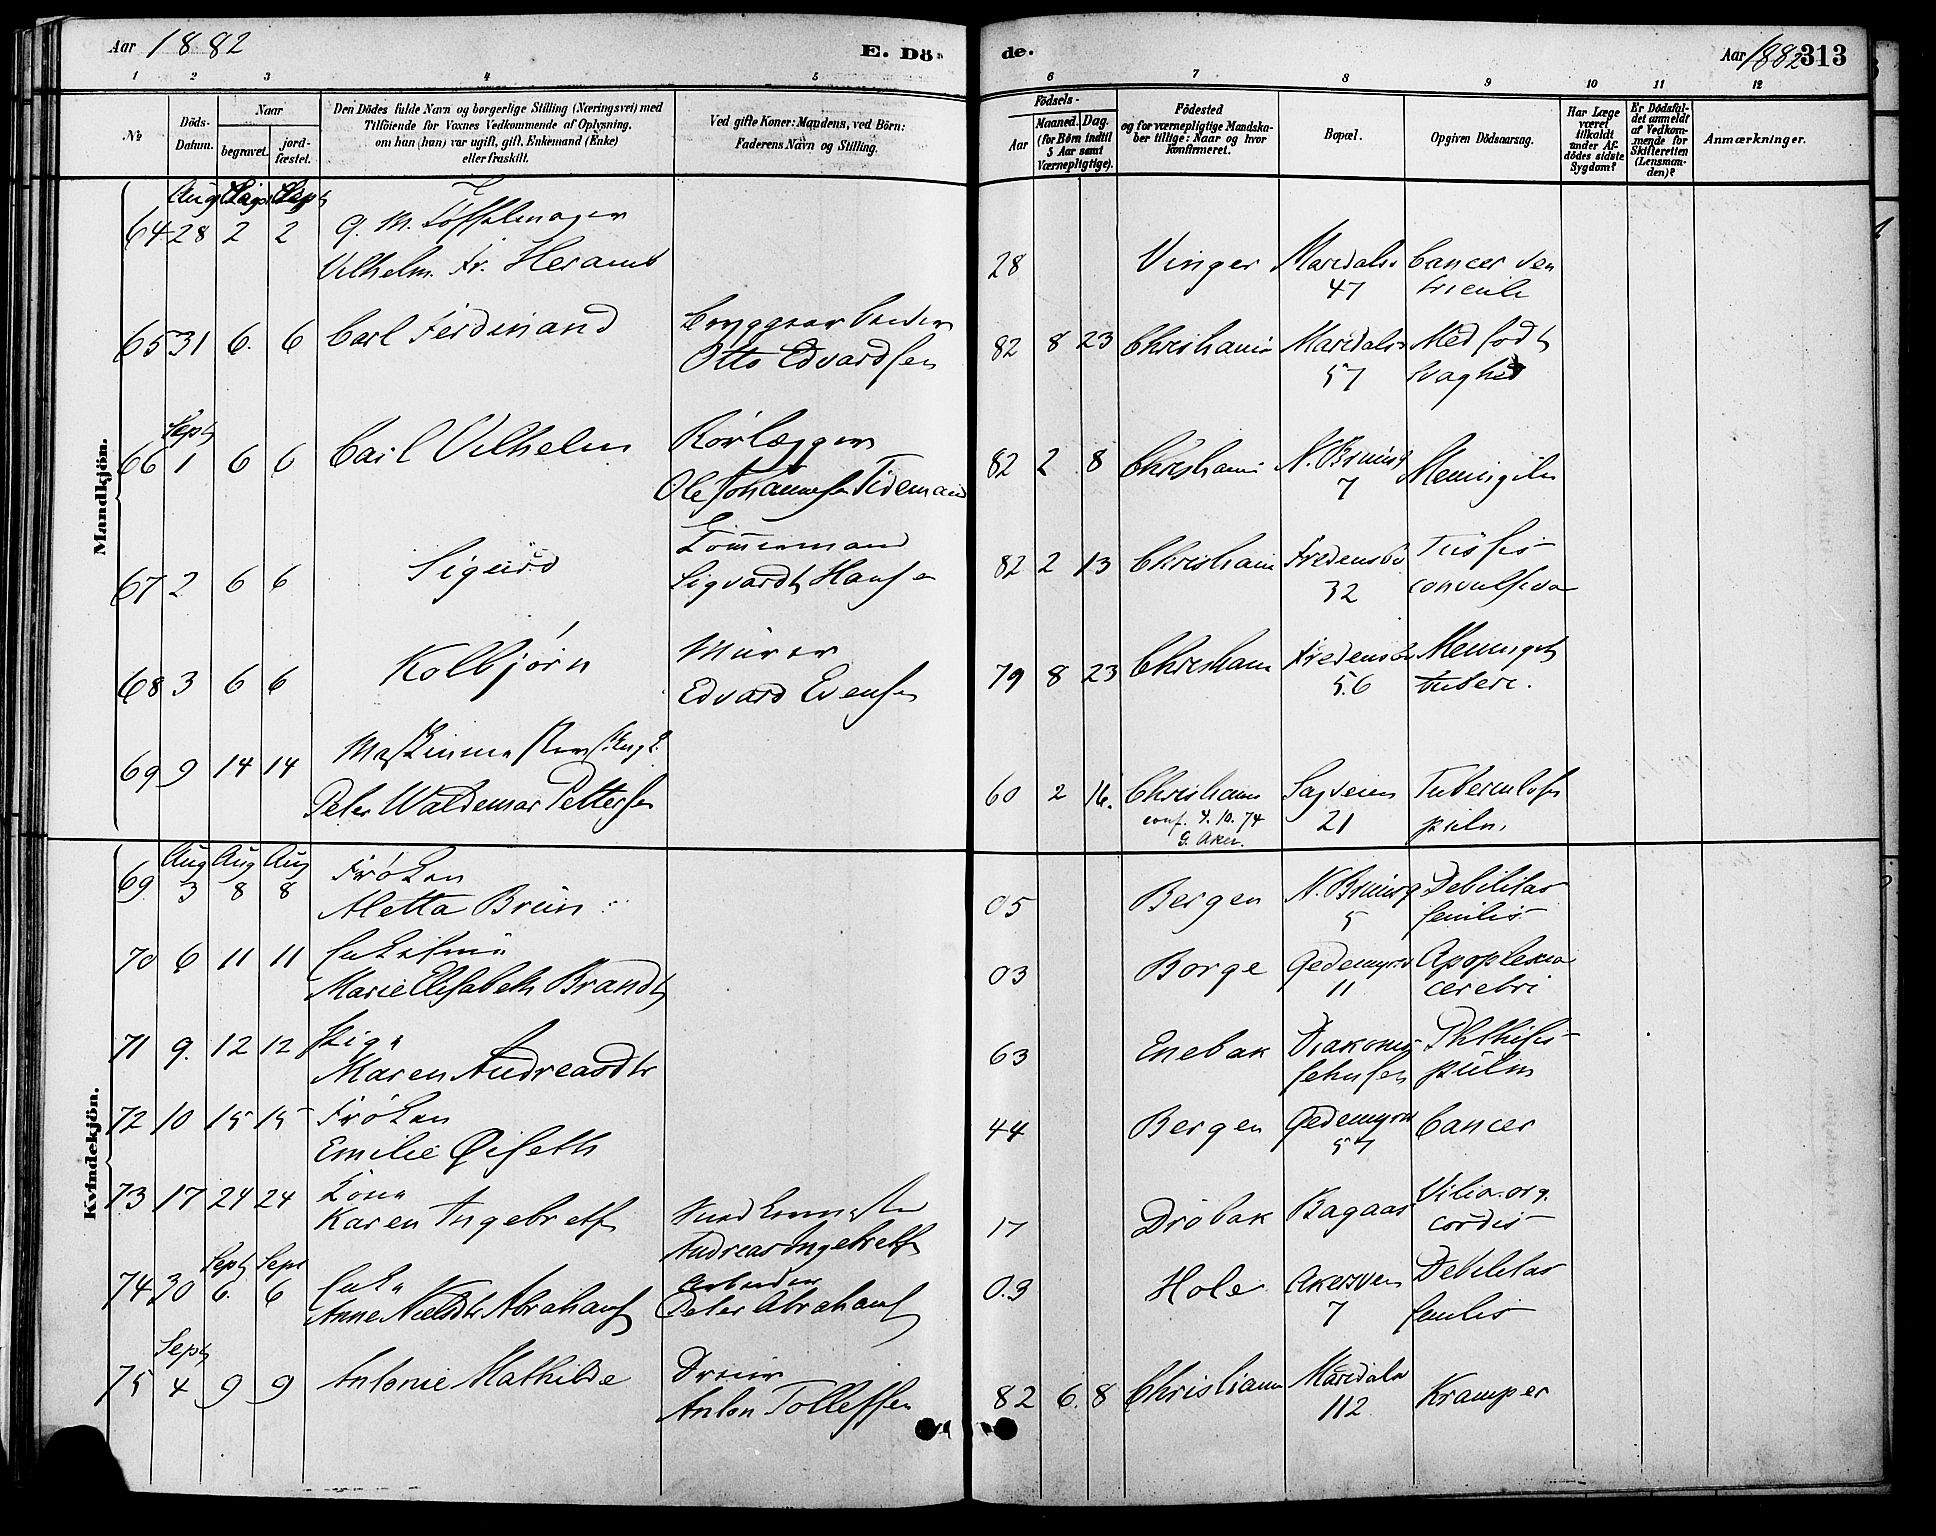 Aar 1882
E. Dö-
de.
Aar 1882 313
1 2 3 4 5 6 7 8 9 10 11 12
№
Döds-
Datum.
Naar
begravet.
jord-
fæstet.
Den Dödes fulde Navn og borgerlige Stilling (Næringsvei) med
Tilföiende for Voxnes Vedkommende af Oplysning,
om han (hun) var ugift, gift, Enkemand (Enke)
eller fraskilt.
Ved gifte Koner: Mandens, ved Börn:
Faderens Navn og Stilling.
Födsels-
Aar
Maaned. Dag.
(for Börn indtil
5 Aar samt
Værnepligtige).
Födested
og for værnepligtige Mandska-
ber tillige: Naar og hvor
konfirmeret.
Bopæl.
Opgiven Dödsaarsag.
Har Læge
været
tilkaldt
under Af-
dödes sidste
Sygdom?
Er Dödsfal-
det anmeldt
af Vedkom-
mende for
Skifteretten
(Lensman-
den)?
Anmærkninger.
Mandkjön.
Aug Sept
64 28 2 2 g. M.
Vilhelm Fr. Heramb
28 Vinger Maridalsv Cancer ven
47 triculi
65 31 6. 6 Carl Ferdinand
Otto Edvardsen
82 8 23 Christiania Maridalsv Medfødt
57 Svaghed
Sept
66 1 6 6 Carl Vilhelm Rørlægger
Ole Johannesen Tidemand
82 2 8 Christiania N. Bruusg Meningitis
7
67 2 6 6 Sigurd Tömmermand
Sigvardt Hansen
82 2 13 Christiania Fredensbo Tussis
32 convulsiva
68 3 6 6 Kolbjørn Murer
Edvard Evensen
79 8 23 Christiania Fredensbo Meningit
56 tuberc.
69 9 14 14 Maskinmester
Peter Waldemar Pettersen
60 2 16. Christiania Sagveien Tuberculosis
conf. 4. 10. 74 21 pulm.
G. Aker.
Kvindekjön.
Aug Aug Aug
69 3 8 8 Frøken
Aletta Bruun
05 Bergen N. Bruusg Debilitas
5 senilis
70 6 11 11
Marie Elisabeth Brandt
03 Borge Gedemyrsv Apoplexia
11 cerebri
71 9. 12 12 Pige
Maren Andreasdtr
63 Enebak Diakonis Phthisis
sehusen pulm
72 10 15 15 Frøken
Emilie Øiseth
44 Bergen Gedemyrsv Cancer
57
73 17 24 24 Kone
Karen Ingebretsen
Andreas Ingebretsen
17 Drøbak Bagaas Vitia org.
cordis
Sept Sept
74 30 6. 6 Enke Arbeider
Anne Nielsdtr Abrahamsen Peter Abrahamsen
03 Hole Akersvei Debilitas
7 senilis
Sept
75 4 9 9 Antonie Mathilde
Anton Tollefsen
82 6. 8 Christiania Maridalsv Kramper
112